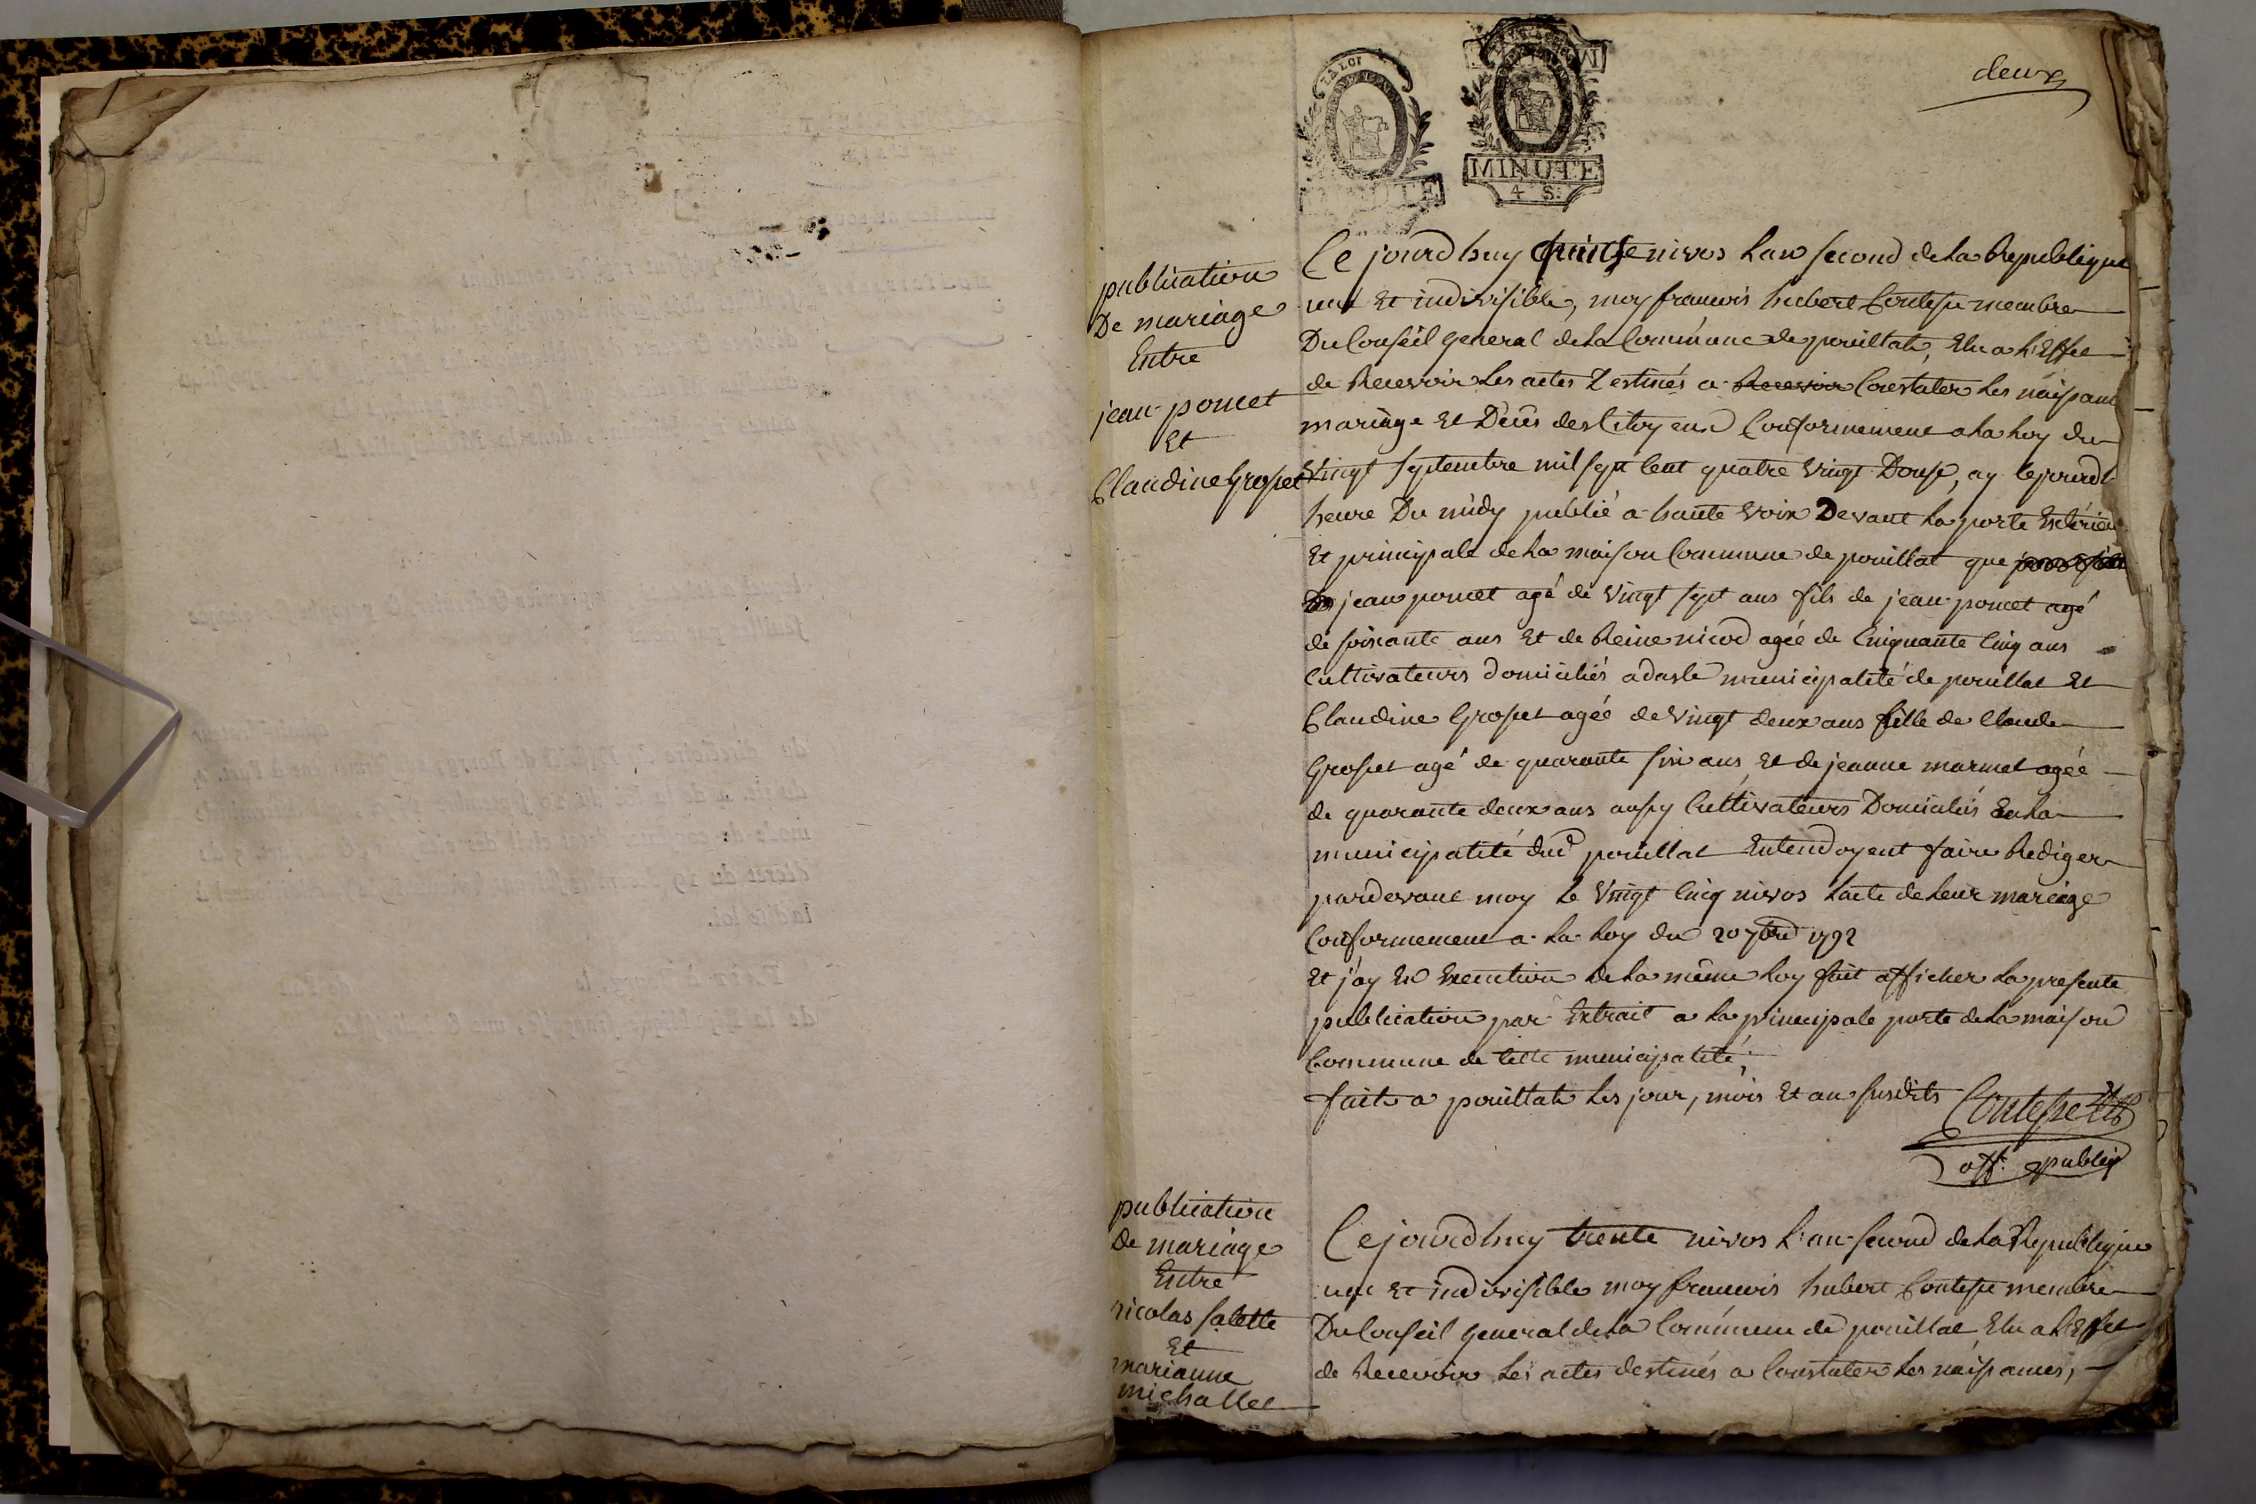 deux
LA LOI
MINUTE
MINUTE
4 S.
publication
De mariage
Entre
jean poncet
Et
Claudine Grosset
Ce jourd huy quinse nivos l an second de la Republique
une Et indivisible, moy francois hubert Contesse membre
Du Conseil general de la Commune de pouillat, Elu a l'Effet
de Recevoir les actes Destinés a Recevoir Constater les naissanc
mariage Et Décès des Citoyens Conformement a la loy du
Vingt septembre mil sept Cent quatre vingt Douse, ay Cejourdh
heure Du midy publié a haute voix Devant la porte Exterieu
Et principale de la maison Commune de pouillat que
jean poncet agé de vingt sept ans fils de jean poncet agé
de soixante ans Et de Reine nicod agée de Cinquante Cinq ans
Cultivateurs domiciliés a dasle municipalité de pouillat Et
Claudine Grosset agée de vingt deux ans fille de Claude
Grosset agé de quarante six ans Et de jeanne marmet agée
de quarante deux ans aussy Cultivateurs Domiciliés En la
municipalité dud pouillat Entendoyent faire Rediger
pardevant moy le vingt Cinq nivos l'acte de leur mariage
Conformement a la loy du 20 7bre 1792
Et j'ay En Execution de la même loy fait afficher la presente
publication par Extrait a la principale porte de la maison
Commune de cette municipalité,
fait a pouillat les jour, mois Et an susdits
Contesse
off. public
publication
De mariage
Entre
nicolas salette
Et
marianne
michallet
Ce jourd huy trente nivos l'an second de la Republique
une Et indivisible moy francois hubert Contesse membre
Du Conseil general de la Commune de pouillat Elu a l'Effet
de Recevoir les actes destinés a Constater les naissances,